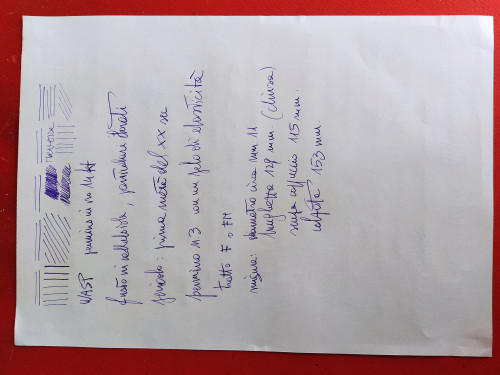 WASP pennino in oro 14 kt
fusto in celluloide, finiture dorati
periodo: prima metà del XX se
pennino n 3 con un pelo di elasticità
tratto F o FM
misure: diametro circa mm 11
lunghezza 129 mm. (chiusa)
senza cappuccio 115 mm.
calzata 153 mm.